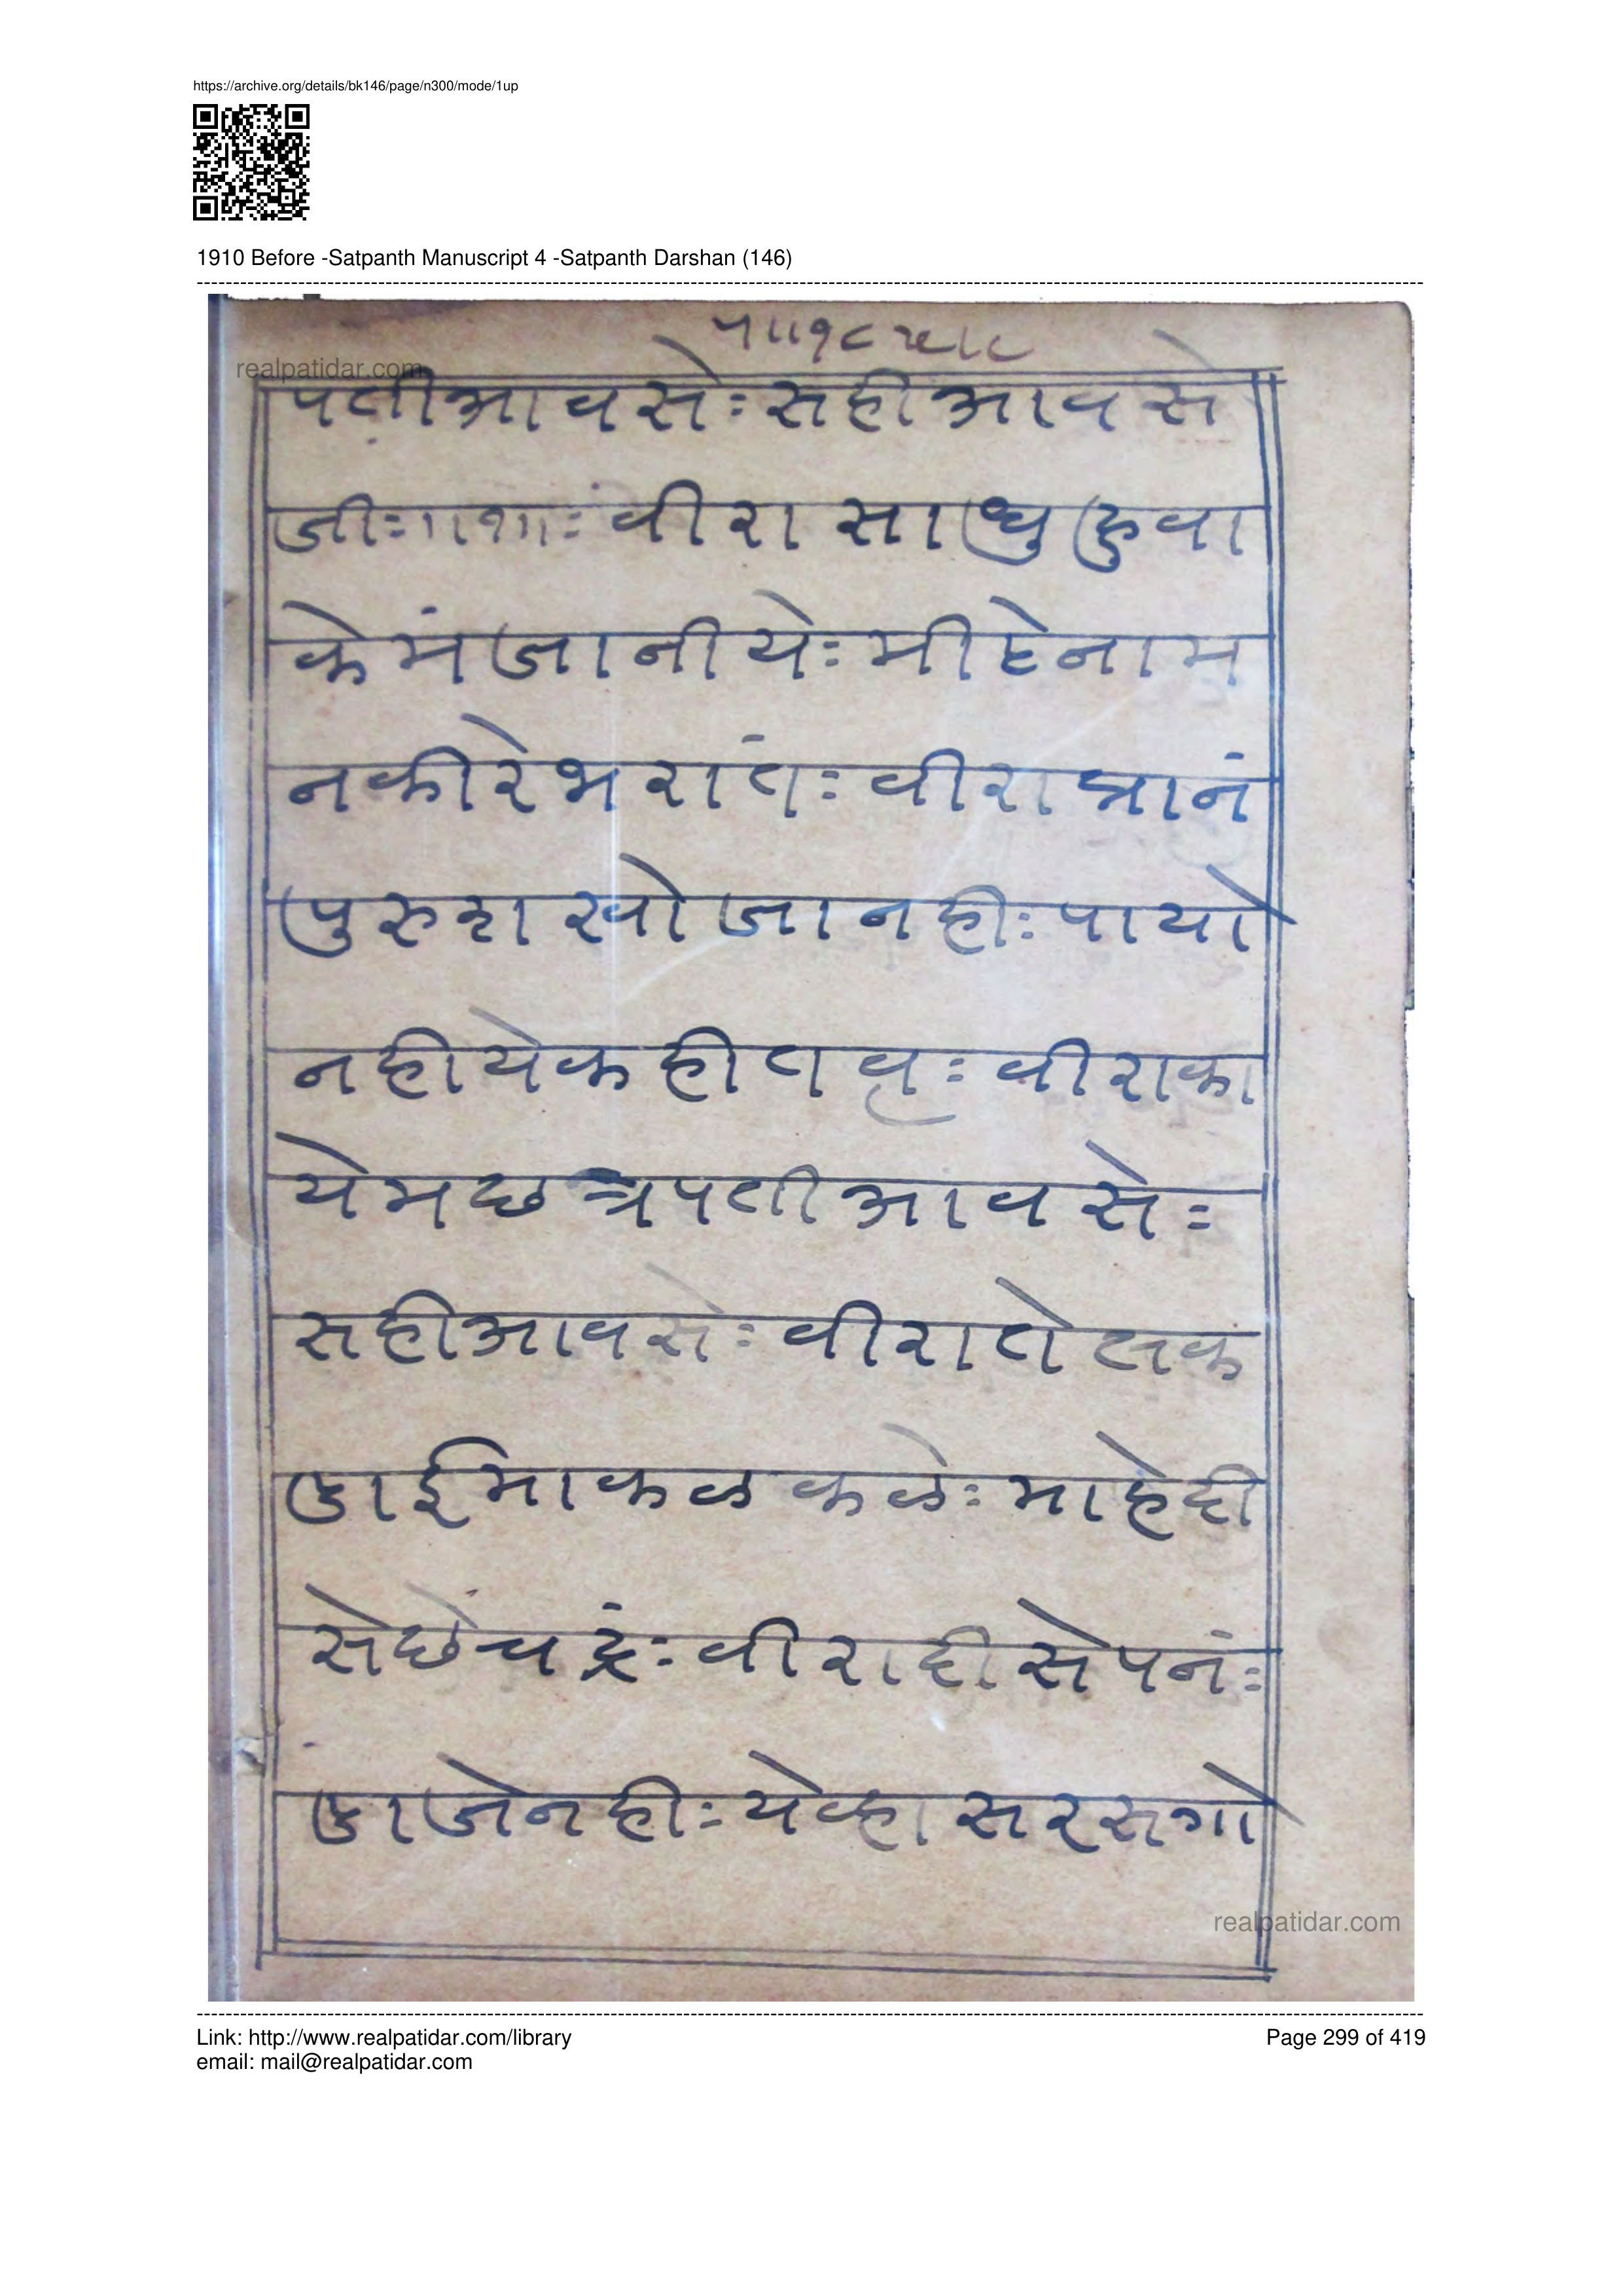 https://archive.org/details/bk146/page/n300/mode/1up
1910 Before -Satpanth Manuscript 4 -Satpanth Darshan (146)
realpatidar.com
पतीआवसेः सहीआवसे
जीः॥१॥ः वीरा साधु हुवा
केमं जानीयेः मीटेनाम
नकीरे भरांतः वीरा त्रानं
पुरुश खोजा नहीः पायो
नही येक ही तवृः वीराका
येम छत्रपती आवसेः
सही आवसेः वीरा तेलक
ढाई माकळ कळेः माहेदी
से छें चद्रंः वीरा दीसे पनंः
ढाजे नहीः येव्हा सरसगो
realpatidar.com
Link: http://www.realpatidar.com/library
Page 299 of 419
email: mail@realpatidar.com